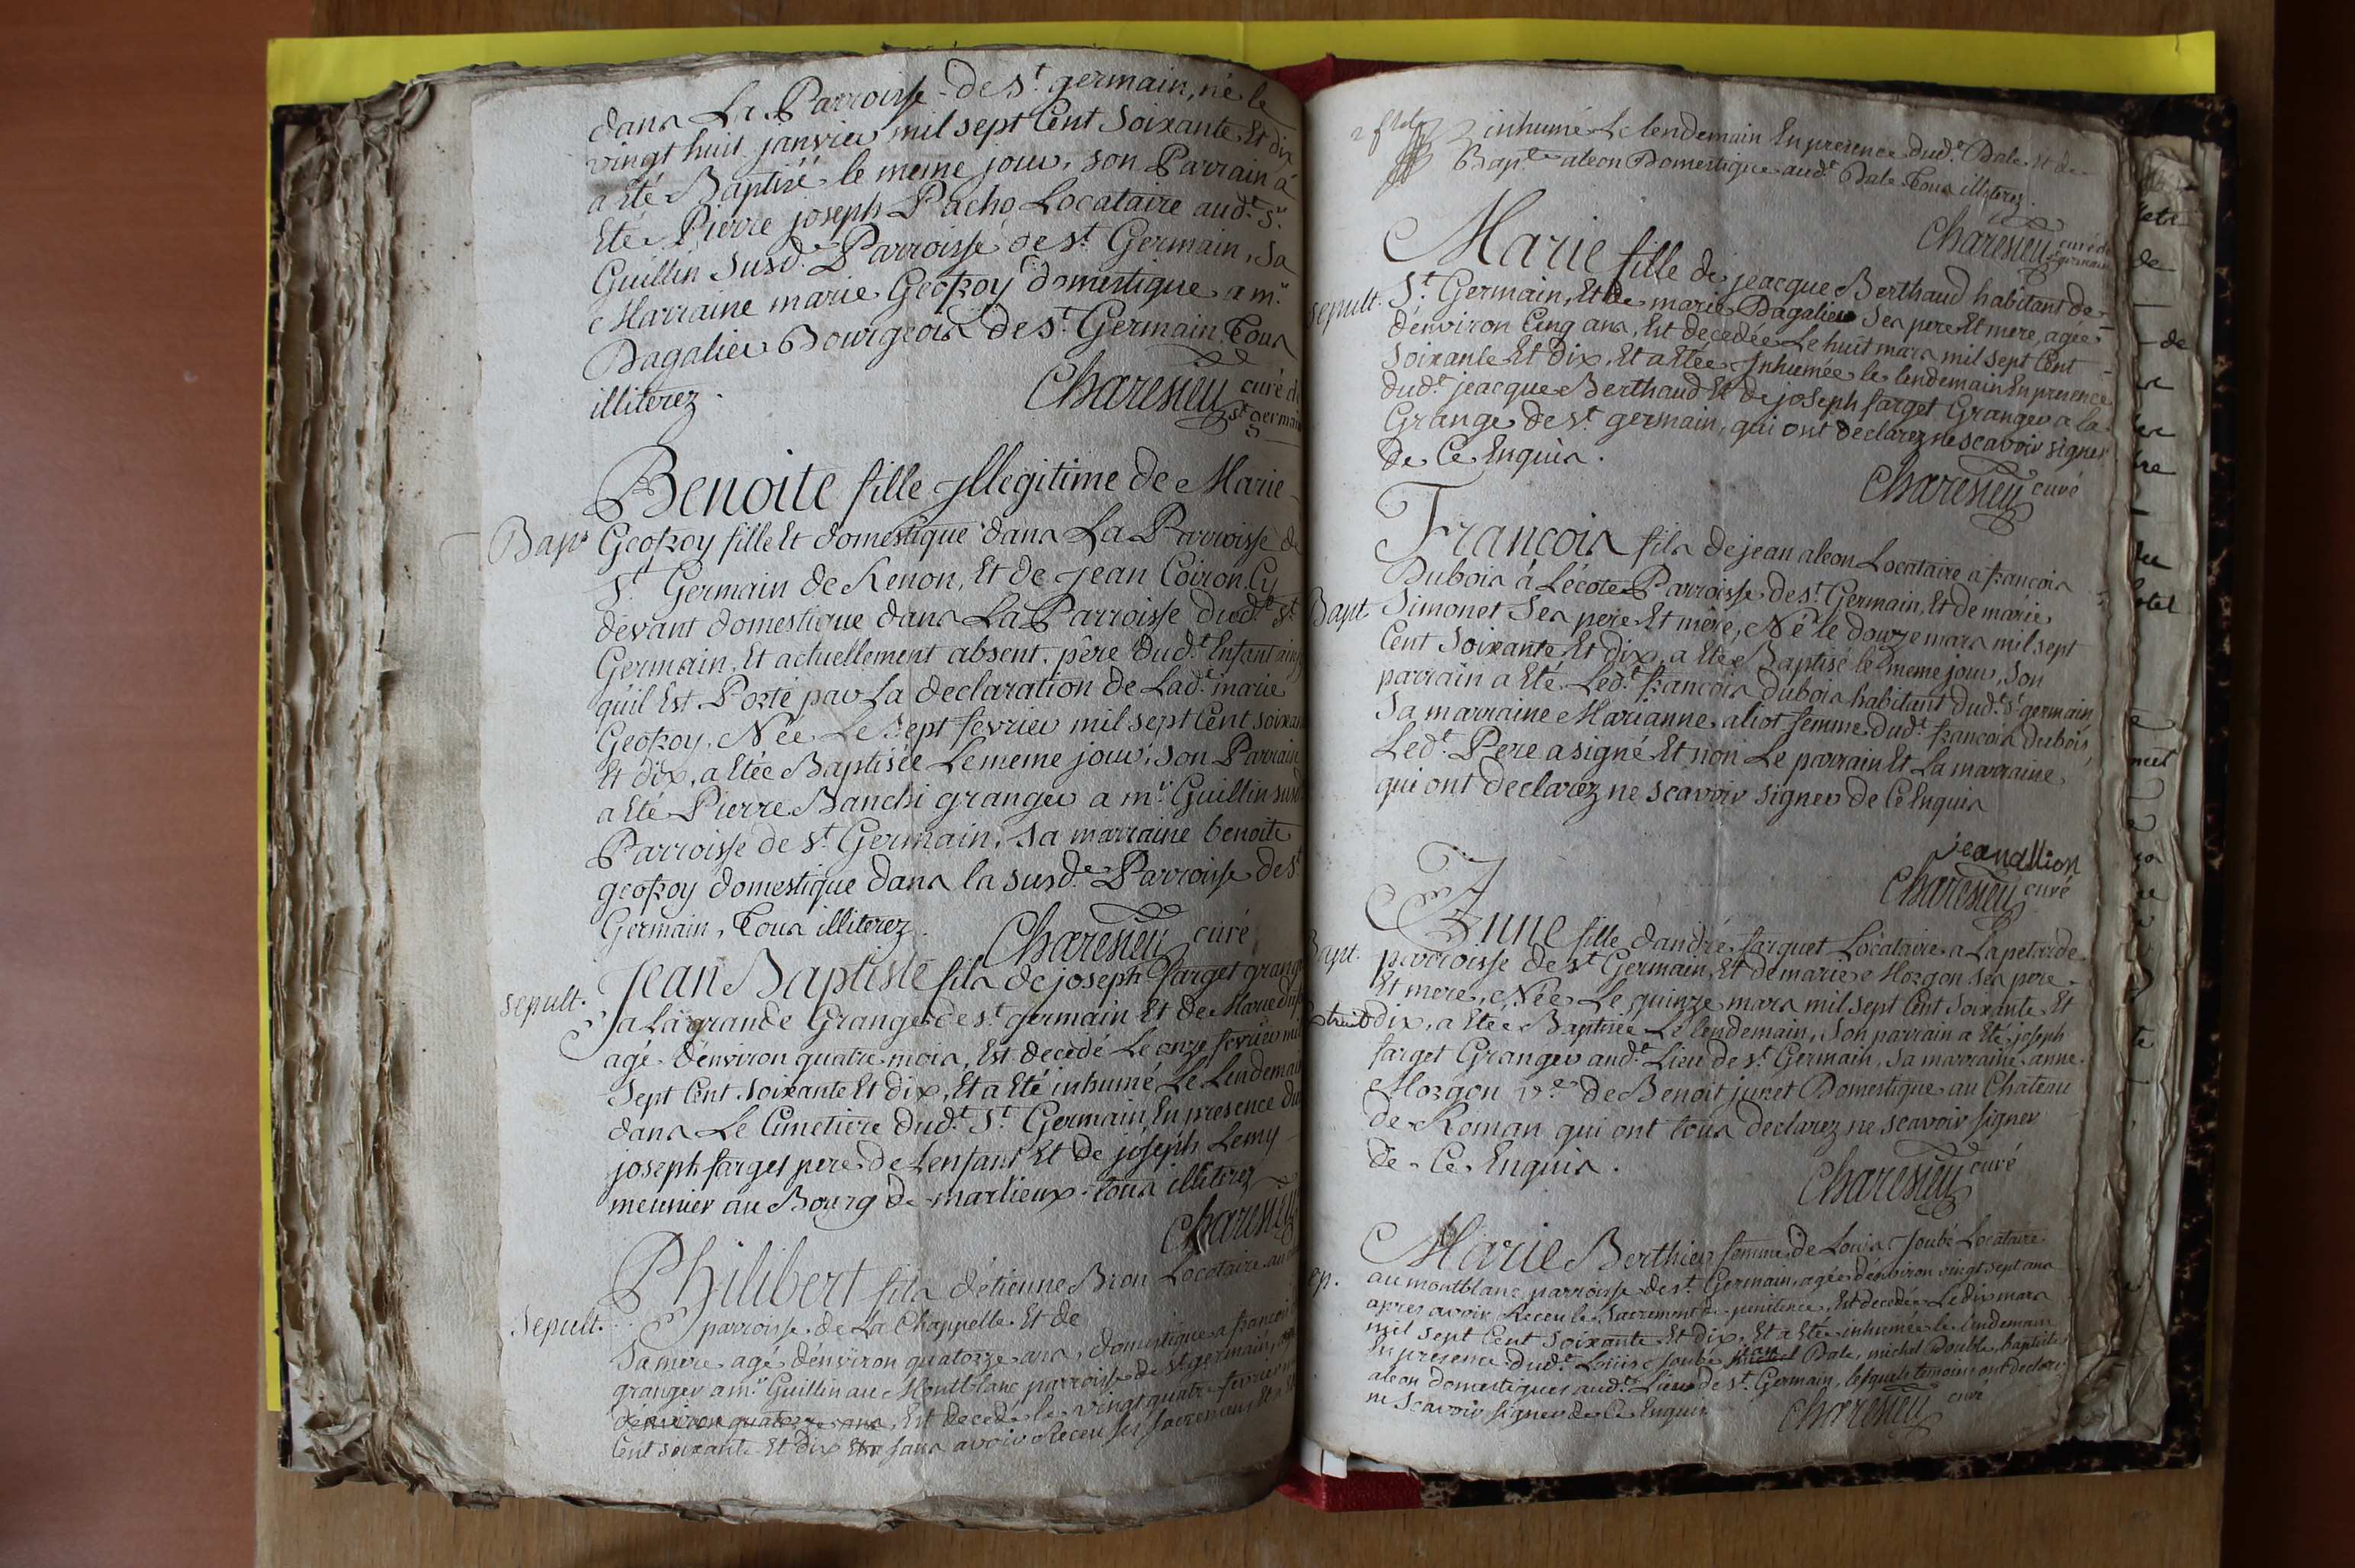 dans La Parroisse de St germain, né le
vingt huit janvier mil sept Cent Soixante Et dix
a Eté Baptisé le meme jour, son Parrain à
Eté Pierre joseph Pacho Locataire aud.t Sr.
Guillin Susd.e Parroisse de St. Germain, Sa
Marraine marie Geofroy domestique a mr.
Dagalier Bourgeois de St. Germain Tous
illiterez.
Charesieu curé de
St germain
Benoite fille jllegitime de Marie
Bap.s Geofroy fille Et domestique dans La Parroisse de
St. Germain de Renon, Et de jean Coiron Cy
devant domestique dans La Parroisse dud.t St.
Germain, Et actuellement absent. père dud.t Enfant
qu'il Est Porté par La declaration de Lad.e marie
Geofroy, Née Le Sept fevrier mil sept Cent soixan
Et dix, a Etée Baptisée Le meme jour, son Parrain
a Eté Pierre Banchi granger a mr. Guillin
Parroisse de St. Germain, Sa marraine benoite
geofroy domestique dans la susd.e Parroisse de St.
Germain, Tous illiterez.
Charesieu curé
Jean Baptiste fils de joseph farget grang
sepult. a La grande Grange de St. germain Et de Marie
agé d'environ quatre mois, Est decedé Le onze fevrier mil
Sept Cent Soixante Et dix, Et a Eté inhumé Le Lendemain
dans Le Cimetiere dud.t St. Germain, En presence du
joseph farget pere de Lenfant Et de joseph Lemy
meunier au Bourg de marlieux tous illiterez
Charesieu
Philibert fils d'etienne Bron Locataire au
Sepult. parroisse de La Chappelle Et de
Sa mere agé d'environ quatorze ans, domestique a francois
granger a mr. Guillin au Montblanc parroisse de St germain,
d'environ quatorze ans, Est decedé le vingt quatre fevrier
Cent soixante Et dix sans avoir Receu ses sacremens Et a
inhumé Le lendemain En presence dud.t Dale Et de
Bap.te aleon Domestique aud.t Dale Tous illiterez.
Charesieu curé de
St germain
Marie fille de jeacque Berthaud habitant de
sepult. St. Germain, Et de marie Dagalier Ses pere Et mere, agée
d'environ Cinq ans, Est decedée Le huit mars mil sept Cent
Soixante Et dix, Et a Etée Inhumée le lendemain En presence
dud.t jeacque Berthaud Et de joseph farget Granger a la
Grange de St. germain, qui ont declarez ne scavoir signer
de Ce Enquis.
Charesieu curé
Francois fils de jean aleon Locataire a francois
Dubois à Lécote Parroisse de St. Germain, Et de marie
Bapt. Simonet Ses pere Et mère, Né le douze mars mil sept
Cent Soixante Et dix, a Eté Baptisé le meme jour, Son
parrain a Eté Led.t francois dubois habitant dud.t St germain
Sa marraine Marianne aliot femme dud.t francois dubois
Led.t Pere a signé Et non Le parrain Et La marraine
qui ont declarez ne scavoir signer de Ce Enquis
jean allion
Charesieu curé
Anne fille d'andré farguet Locataire a Lapetarde
Bapt. parroisse de St Germain, Et de marie Morgon ses pere
Et mere, Née Le quinze mars mil sept Cent Soixante Et
dix, a Etée Baptisée Le lendemain, Son parrain a Eté joseph
farget Granger aud.t Lieu de St. Germain, Sa marraine anne
Morgon v.e de Benoit junet Domestique au Chateau
de Roman qui ont tous declarez ne scavoir signer
de Ce Enquis.
Charesieu curé
Marie Berthier femme de Louis joubé Locataire
au montblanc parroisse de St. Germain, agée d'environ vingt sept ans
apres avoir Receu le Sacrement de penitence, Est decedée Le dix mars
mil sept Cent Soixante Et dix, Et a Etée inhumée le lendemain
En presence dud.t Louis joubé jean Dale, michel Double, baptiste
aleon domestiques aud.t Lieu de St. Germain, lesquels temoins ont declaré
ne Scavoir signer de Ce Enquis
Charesieu curé